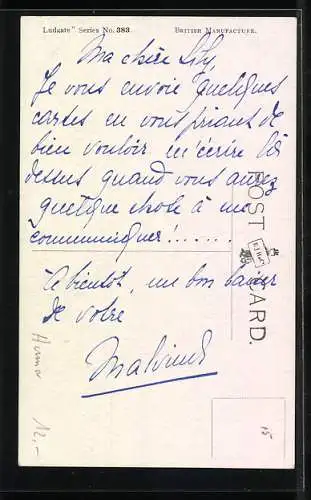 Ludgate" Series No. 383. British Manufacture.
Ma chère Lily,
Je vous envoie quelques
cartes en vous priant de
bien vouloir m'écrire là
dessus quand vous aurez
quelque chose à me
communiquer!......
A bientôt, un bon baiser
de votre
POST CARD.
12,-
15